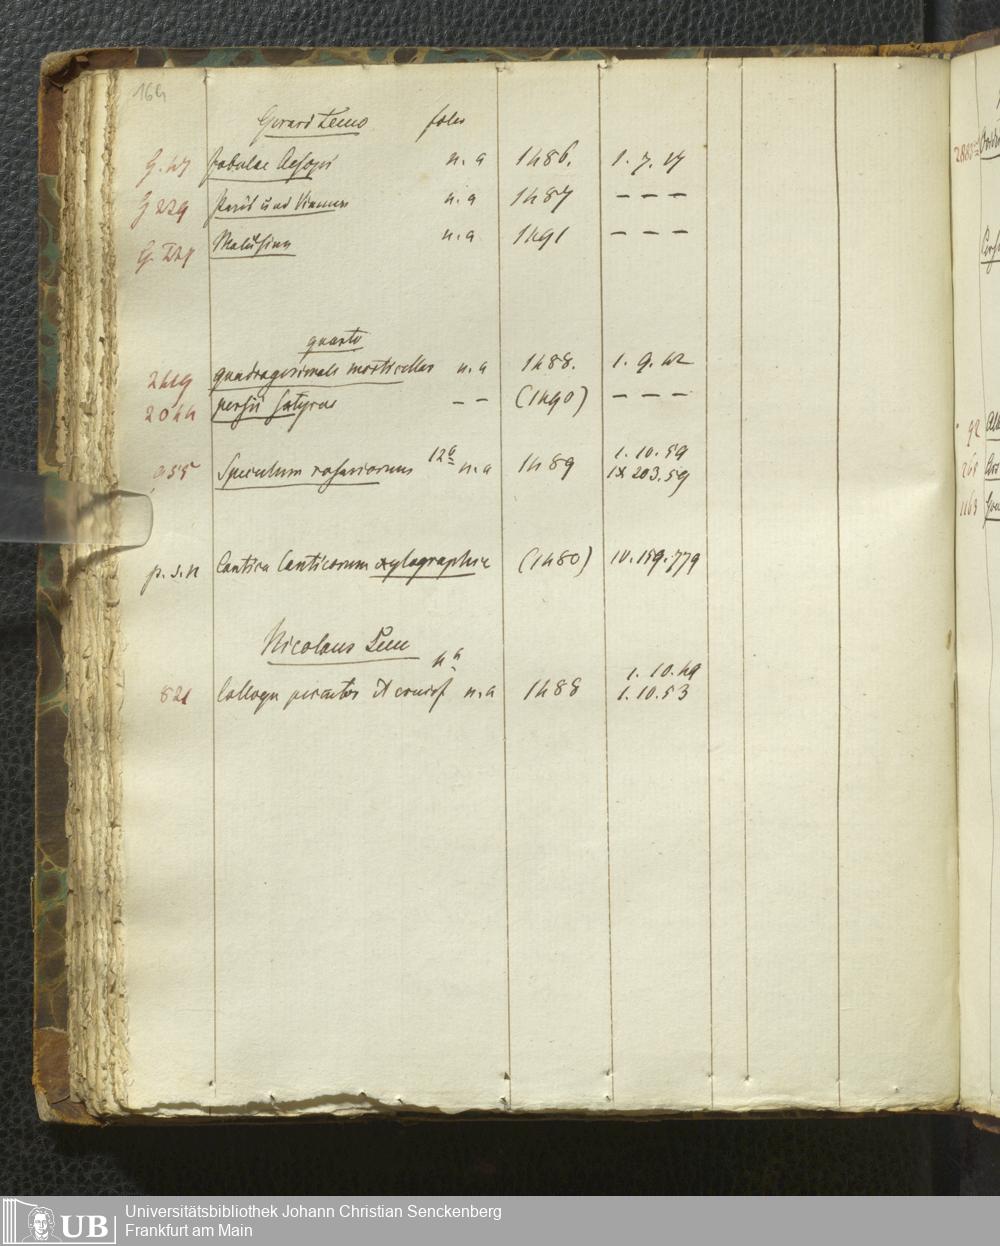 164
Gerard Leuo folio
G. 47 fabulae Aesopi n. a 1486. 1. 7. 17
G 229 Paris und Vienna n. a 1487 – – –
G. Melusina n. a 1491 – – –
quarto
2419 quadragesimale morticellus n. a 1488. 1. 9. 42
2044 persii Satyrae – – (1490) – – –
955 Speculum rosariorum 12º n. a 1489 1. 10. 59
IX 203. 59
p. s. n Cantica Canticorum xylographice (1480) IV. 159. 779
Nicolaus Leeu
4º
1. 10. 49
821 Colloqu peccatoris et crucif n. a 1488 1. 10. 53
92
268
1163
UB Universitätsbibliothek Johann Christian Senckenberg
Frankfurt am Main